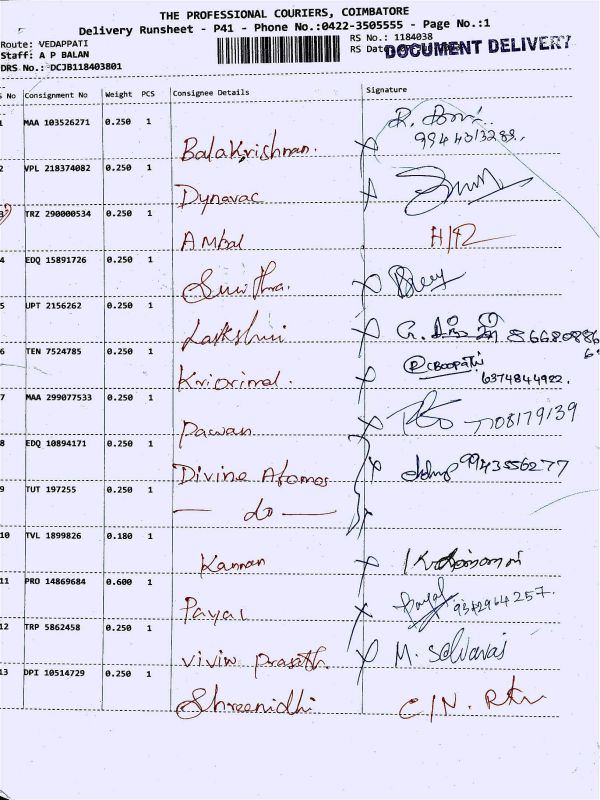 THE PROFESSIONAL COURIERS, COIMBATORE
Delivery Runsheet - P41 - Phone No.:0422-3505555 - Page No.:1
Route: VEDAPPATI
RS No.: 1184038
Staff: A P BALAN
RS Date
DOCUMENT DELIVERY
DRS No.: DCJB118403801
S No Consignment No Weight PCS Consignee Details Signature
1 MAA 103526271 0.250 1 Balakrishnan. X
9944313288.
2 VPL 218374082 0.250 1 Dynavac X
3 TRZ 290000534 0.250 1 Ambal
4 EDQ 15891726 0.250 1 X
5 UPT 2156262 0.250 1 X
6 TEN 7524785 0.250 1 X
6374844922.
7 MAA 299077533 0.250 1 Pawan X 7708179139
8 EDQ 10894171 0.250 1 Divine Atomos X 9943556277
9 TUT 197255 0.250 1 — do —
10 TVL 1899826 0.180 1 Kannan X
11 PRO 14869684 0.600 1 Payal X Payal
12 TRP 5862458 0.250 1 Vivin Prasath. X M. Selvaraj
13 DPI 10514729 0.250 1 Shreenidhi